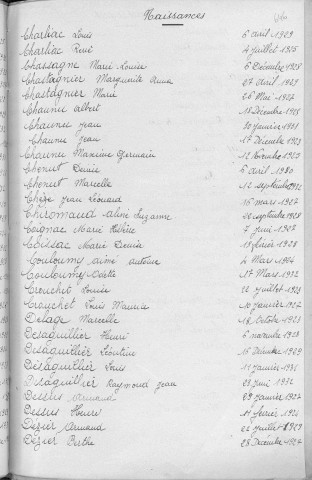 Naissances
Charliac Louis 6 avril 1929
Charliac René 4 juillet 1925
Chassagne Marie Louise 6 Décembre 1928
Chastagnier Marguerite Anna 27 avril 1929
Chastagnier Marie 26 Mai 1927
Chaunu Albert 18 Décembre
Chaunu Jean 30 janvier 1931
Chaunu Jean 17 Décembre 1928
Chaunu Maxime Germain 12 Novembre 1925
Chenut Denise 5 avril 1930
Chenut Marcelle 12 septembre
Chèze Jean Léonard 16 mars 1927
Chiromaud Aline Suzanne 20 septembre 1928
Coignac Marie Hélène 7 juin 1927
Coissac Marie Denise 18 février 1928
Couloumy Aimé Antoine 4 Mars
Couloumy Odette 17 Mars 1932
Crouchet Louise 22 juillet 1928
Crouchet Louis Maurice 10 janvier 1927
Delage Marcelle 18 Octobre 1923
Desaguillier Henri 6 novembre 1928
Desaguillier Léontine 16 Décembre 1929
Désaguillier Louis 11 janvier
Désaguillier Raymond Jean 28 juin
Dessus Armand 29 janvier 1927
Dessus 11 février
Dézier Armand 22 juillet 1929
Dézier Berthe 28 Décembre 1927